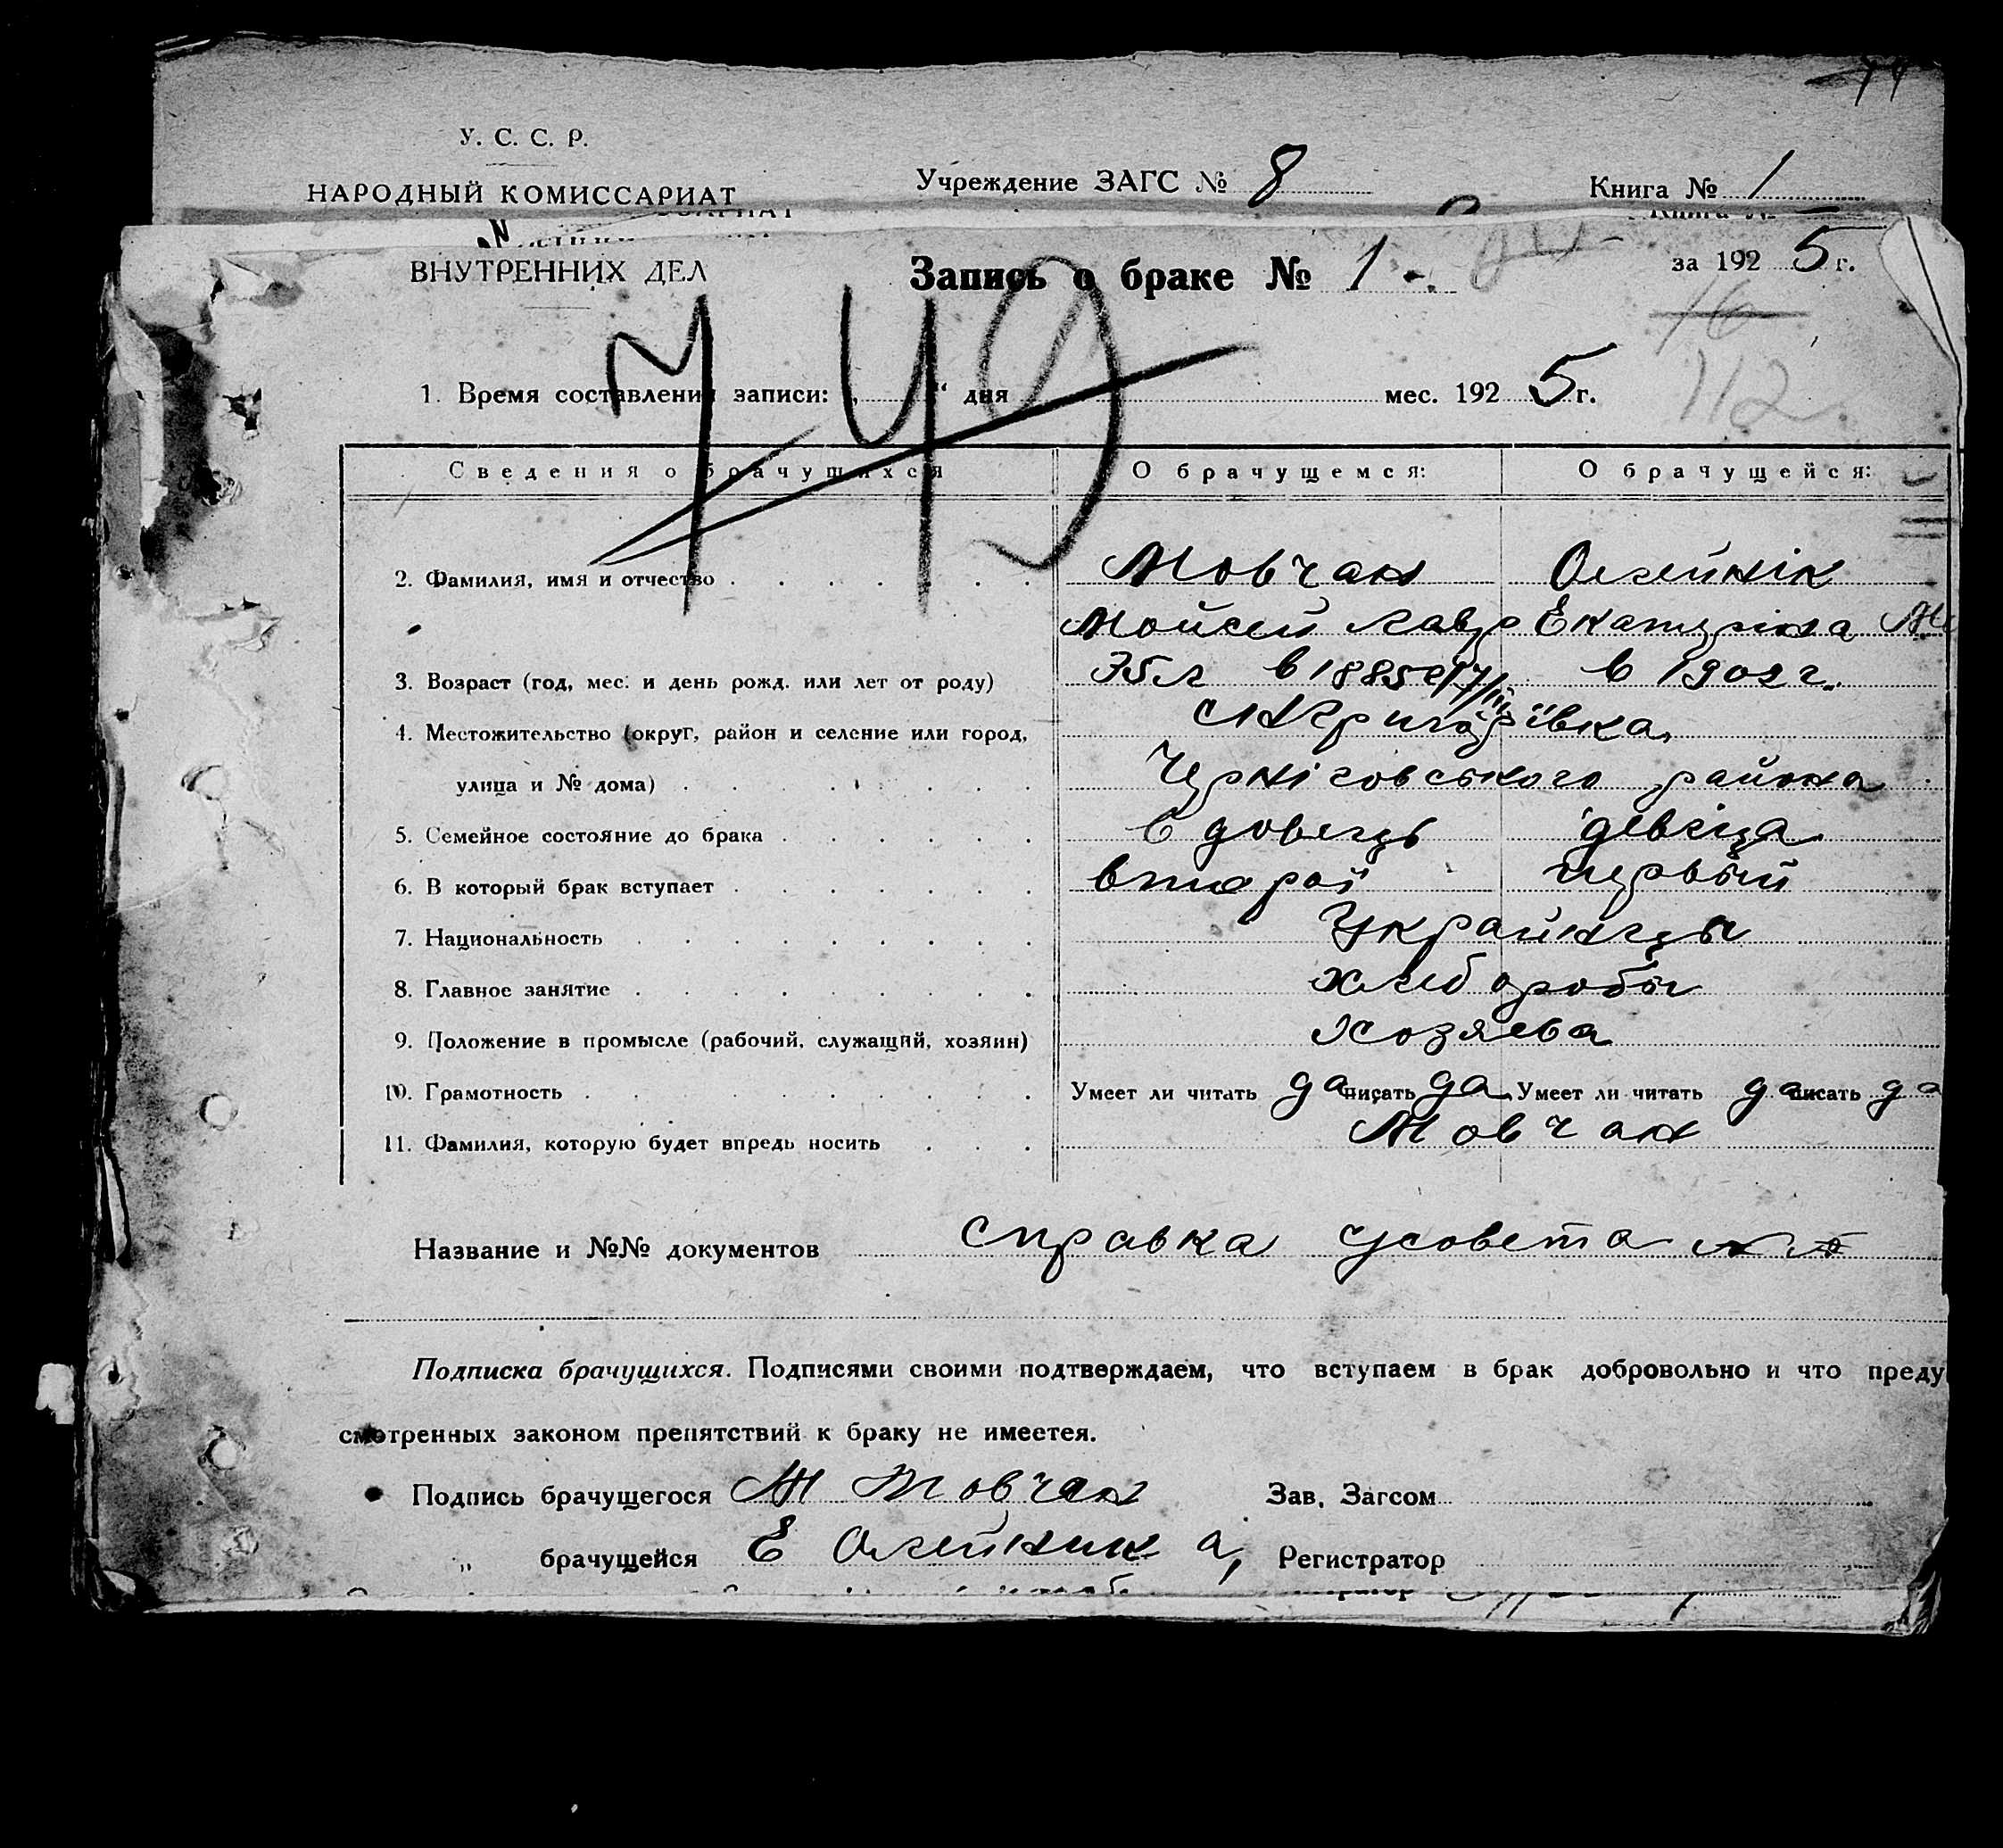 У. С. С. Р.
НАРОДНЫЙ КОМИССАРИАТ
Учреждение ЗАГС № 8
Книга № 1
ВНУТРЕННИХ ДЕЛ
Запись о браке № 1
за 1925 г.
16
112
749
1. Время составления записи: „ “ дня мес. 1925 г.
Сведения о брачущихся О брачущемся: О брачущейся:
2. Фамилия, имя и отчество Мовчан Олейнік
Мойсей Лавр Екатеріна
3. Возраст (год, мес. и день рожд. или лет от роду) 35 л в 1885 в 1902 г.
4. Местожительство (округ, район и селение или город,
улица и № дома) Черніговського района
5. Семейное состояние до брака вдовець девица
6. В который брак вступает второй первый
7. Национальность Украйнцы
8. Главное занятие хлеборобы
9. Положение в промысле (рабочий, служащий, хозяин) Хозяева
10. Грамотность Умеет ли читать да писать да Умеет ли читать да писать да
11. Фамилия, которую будет впредь носить Мовчан
Название и №№ документов справка
Подписка брачущихся. Подписями своими подтверждаем, что вступаем в брак добровольно и что преду
смотренных законом препятствий к браку не имеется.
Подпись брачущегося М Мовчан Зав. Загсом
„ брачущейся Е Олейник Регистратор